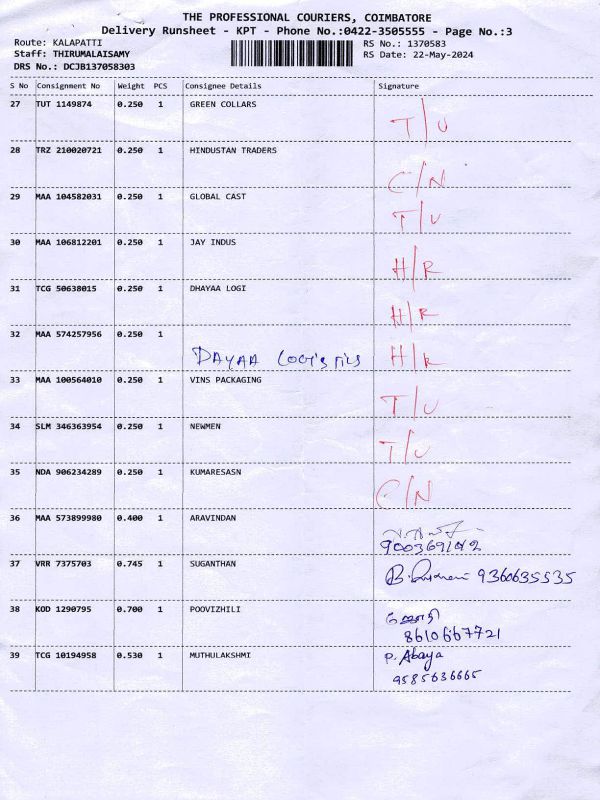 THE PROFESSIONAL COURIERS, COIMBATORE
Delivery Runsheet - KPT - Phone No.:0422-3505555 - Page No.:3
Route: KALAPATTI
Staff: THIRUMALAISAMY
DRS No.: DCJB137058303
RS No.: 1370583
RS Date: 22-May-2024
S No Consignment No Weight PCS Consignee Details Signature
27 TUT 1149874 0.250 1 GREEN COLLARS T/U
28 TRZ 210020721 0.250 1 HINDUSTAN TRADERS C/N
29 MAA 104582031 0.250 1 GLOBAL CAST T/U
30 MAA 106812201 0.250 1 JAY INDUS H/R
31 TCG 50638015 0.250 1 DHAYAA LOGI H/R
32 MAA 574257956 0.250 1
DAYAA LOGISTICS H/R
33 MAA 100564010 0.250 1 VINS PACKAGING T/U
34 SLM 346363954 0.250 1 NEWMEN T/U
35 NDA 906234289 0.250 1 KUMARESASN C/N
36 MAA 573899980 0.400 1 ARAVINDAN
37 VRR 7375703 0.745 1 SUGANTHAN
9360635535
38 KOD 1290795 0.700 1 POOVIZHILI
8610667721
39 TCG 10194958 0.530 1 MUTHULAKSHMI P. Abaya
9585636665